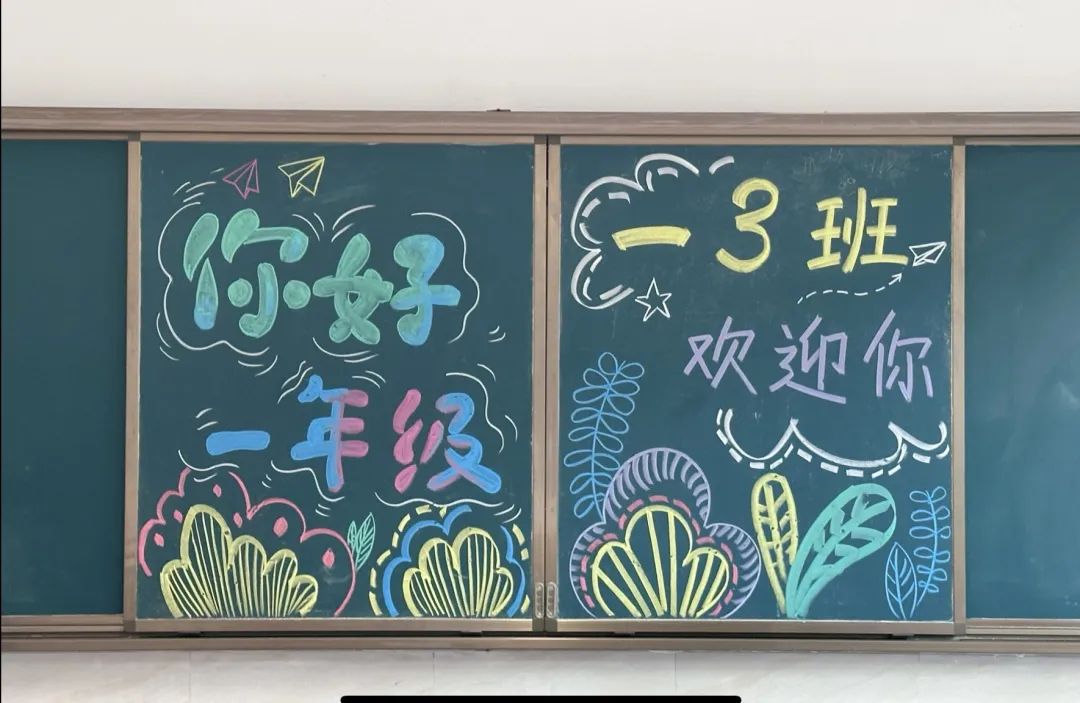 你好
一年级
一3班
欢迎你